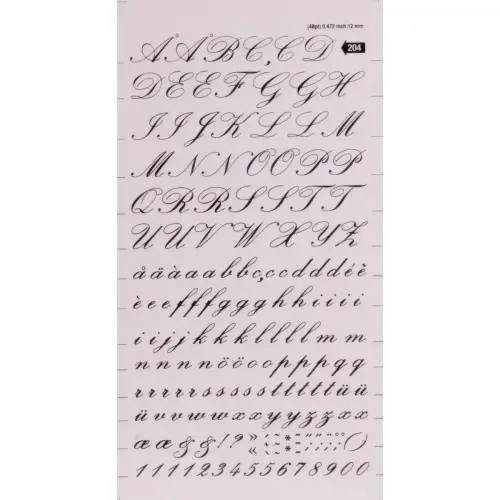 (48pt) 0.472 inch 12 mm
204
A Å B C Ç D
D E E F G G H
I I J K L L M
M N N O O P P
Q R R S S T T
U U V W X Y Z
å ä à a a b b c ç c d d d é ê
è e e f f f g g g h h i i i i
i i j j k k k l l l l m m
m n n n n ö ö o o p p p q q
r r r r r s s s s s t t t t t ü ü
ü u v v w w x x y y z z x x
æ æ & & ! ?
1 1 1 1 2 3 4 5 5 6 7 8 9 0 0